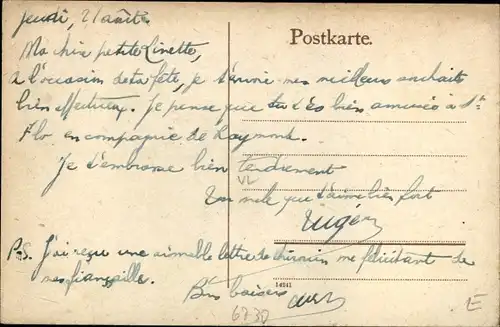 Jeudi, 21 août.
Postkarte.
Ma chère petite Linette,
à l'occasion de ta fête, je t'envoie mes meilleurs souhaits
bien affectueux. Je pense que tu t'es bien amusée à Ste
Flo en compagnie de Raymond.
Je t'embrasse bien tendrement
VL
Ton oncle qui t'aime bien fort
P.S. J'ai reçu une aimable lettre de me félicitant de
mes fiançailles.
Bons baisers
14141
6730
E